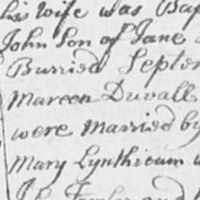 his Wife was Bap
John Son of Jane
Burried Septem
Mareen Duvall
were Married by
Mary Lynthicum